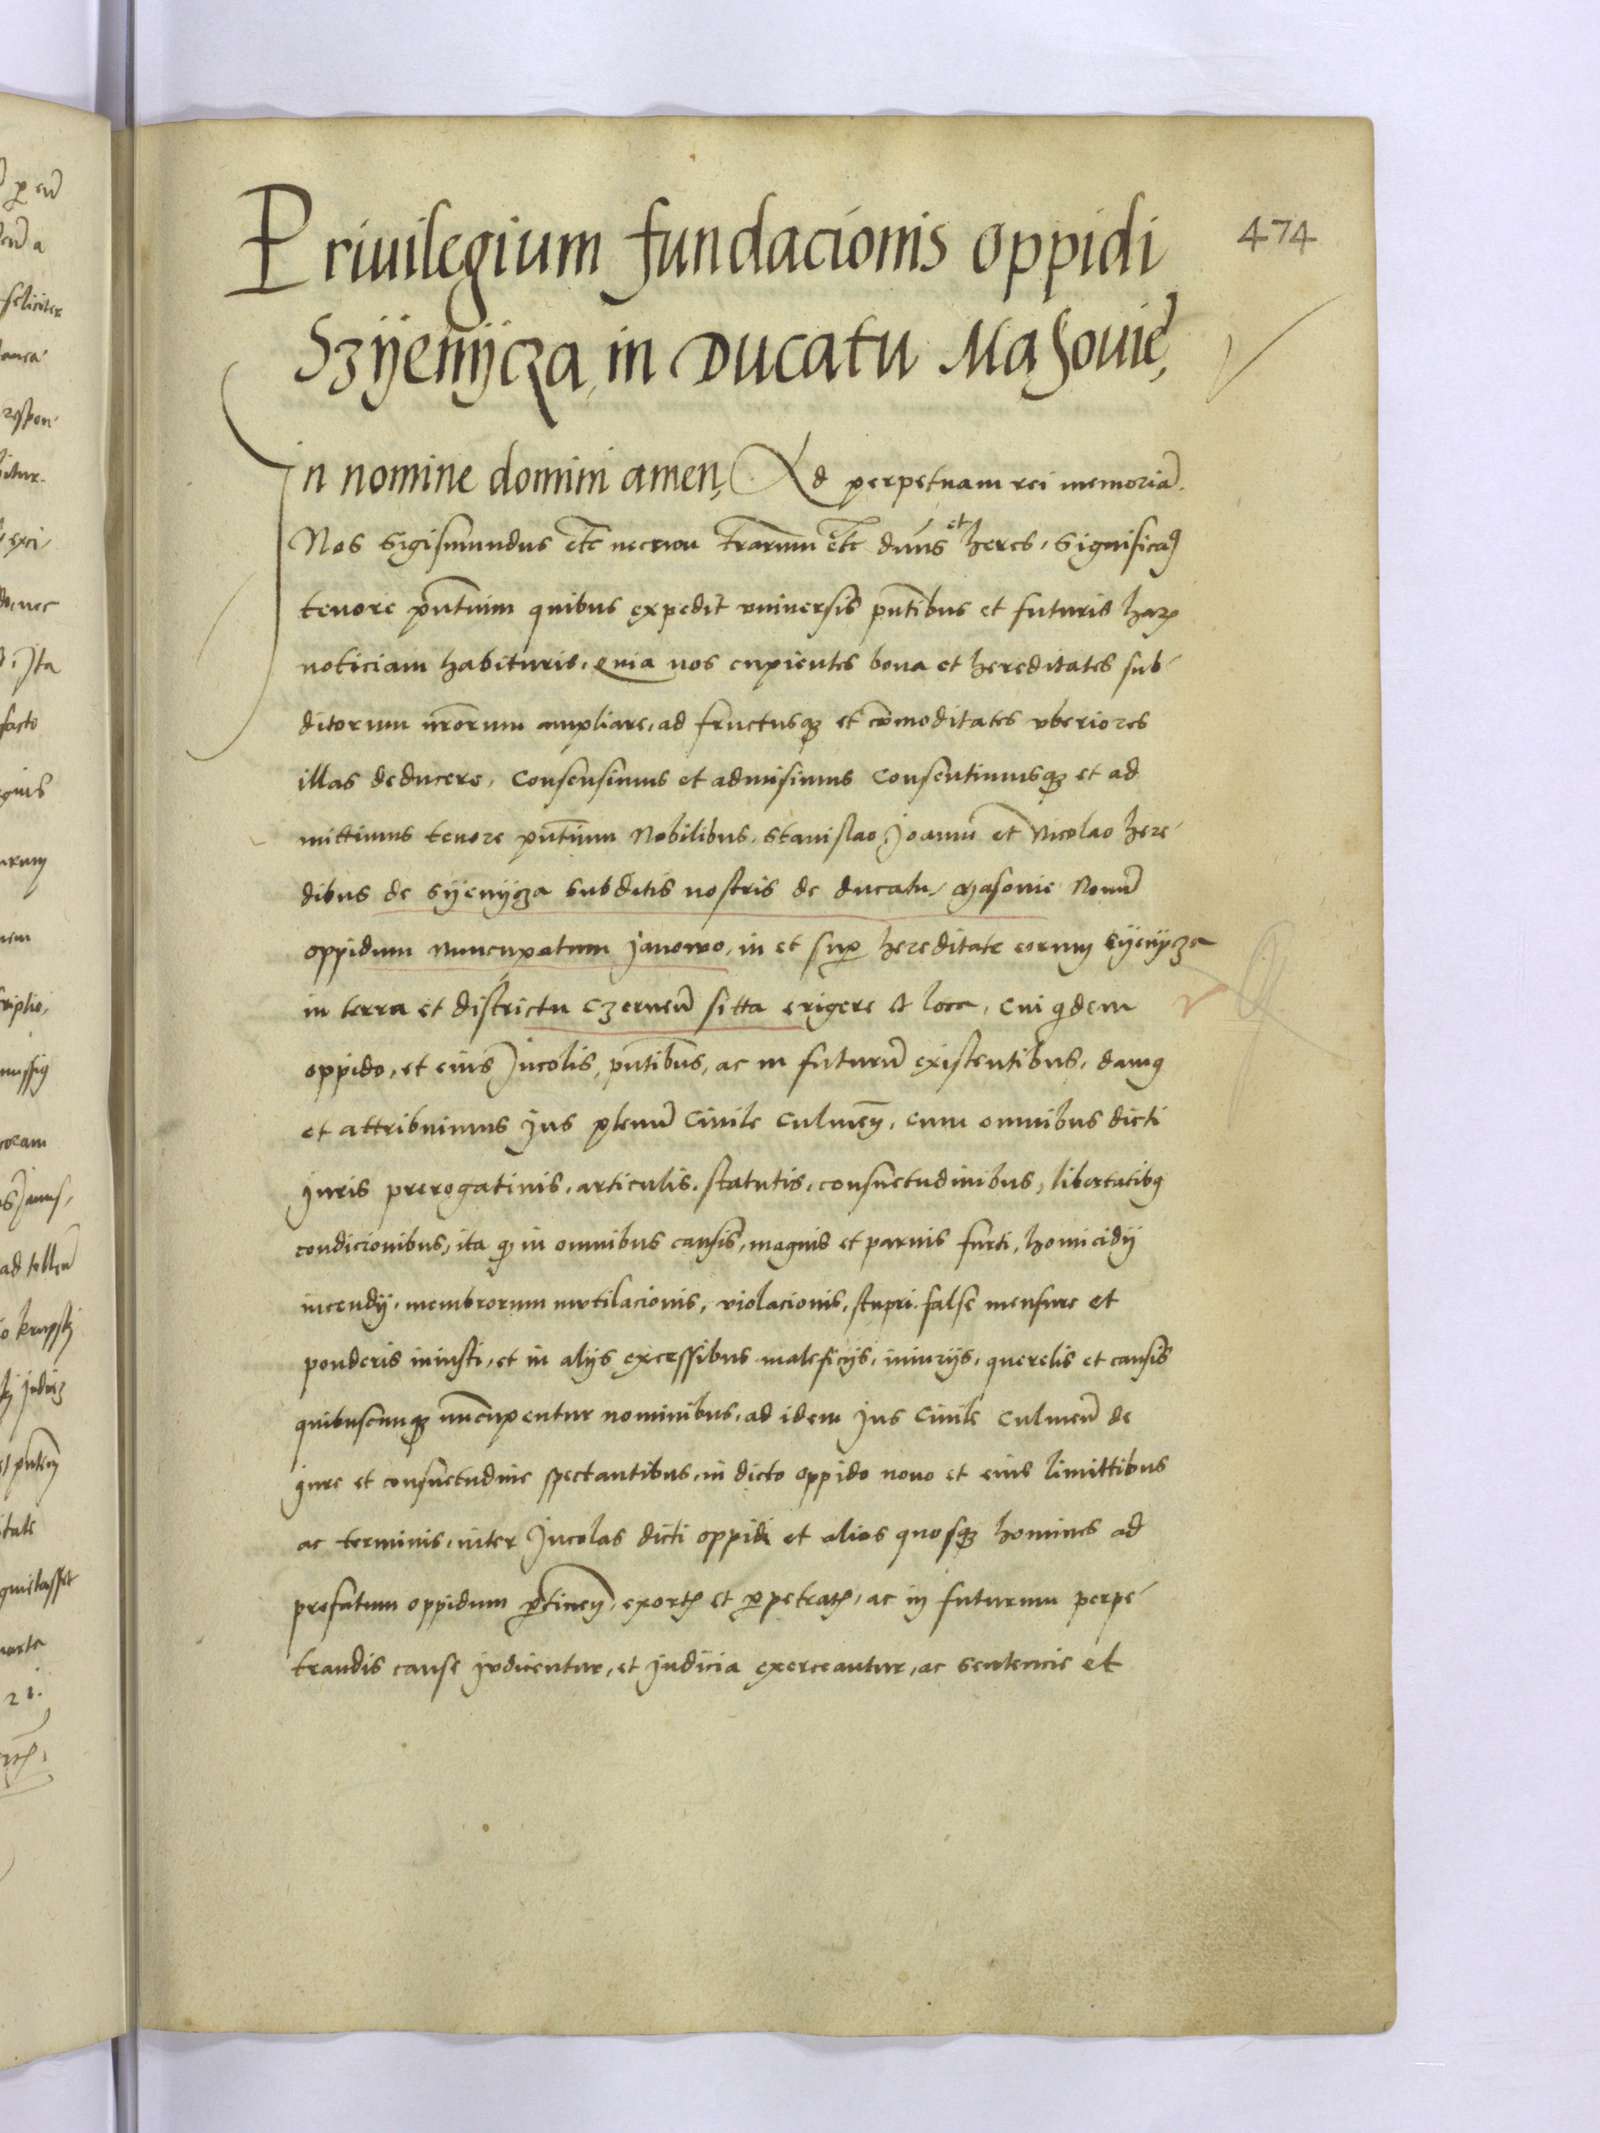 474
Priuilegium fundacionis oppidi
Szÿenÿcza, in Ducatu Masouie,
In nomine domini amen, Ad perpetuam rei memoriã.
Nos Sigismundus etc necnon trarum etc dñus et heres, Significam9
tenore pñtium quibus expedit vniuersis pñtibus et futuris harũ
noticiam habituris, Quia nos cupientes bona et hereditates sub-
ditorum nrõrum ampliare, ad fructusq3 et cõmoditates vberiores
illas deducere, Consensimus et admisimus Consentimusq3 et ad
mittimus tenore pñtium Nobilibus, Stanislao Joanni et Nicolao here-
dibus de Syenÿcza subditis nostris de ducatu Masouie Nouũ
oppidum nuncupatum Janowo, in et sup hereditate eorum Syenÿcza
in terra et districtu Czerneñ sitta erigere et loca, Cui qdem
oppido, et eius Jncolis, pñtibus, ac in futurũ existentibus, dam9
et attribuimus Jus plenũ Ciuile Culmeñ, cum omnibus dicti
Juris prerogatiuis, articulis, statutis, consuetudinibus, libertatib9
condicionibus, ita q in omnibus causis, magnis et paruis furti, homicidij
incendij, membrorum mutilacionis, violacionis, stupri, false mensure et
ponderis iniusti, et in alijs excessibus maleficijs, iniurijs, querelis et causis
quibuscunq3 nũcupentur nominibus, ad idem Jus Ciuile Culmeñ de
iure et consuetudine spectantibus, in dicto oppido nouo et eius limittibus
ac terminis, inter Jncolas dicti oppidi et alios quosq3 homines ad
prefatum oppidum ptineñ, exort et ppetrat, ac in futurum perpe-
trandis cause judicentur, et judicia exerceantur, ac sentencie et